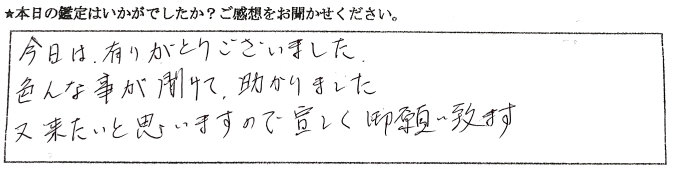 ★本日の鑑定はいかがでしたか？ご感想をお聞かせください。
今日は、有りがとうございました。
色んな事が聞けて、助かりました
又来たいと思いますので宜しく御願い致ます